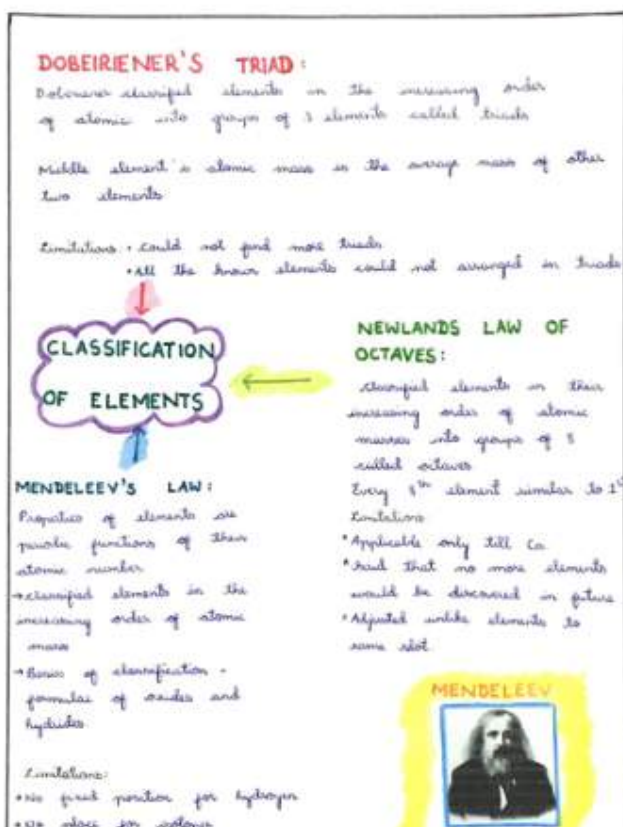 DOBEIRIENER'S TRIAD:
Dobereiner classified elements in the increasing order
of atomic into groups of 3 elements called triads
Middle element's atomic mass is the average mass of other
two elements
Limitations: • Could not find more triads
• All the known elements could not arranged in triads
CLASSIFICATION
OF ELEMENTS
NEWLANDS LAW OF
OCTAVES:
Classified elements in their
increasing order of atomic
masses into groups of 8
called octaves
Every 8th element similar to 1st
Limitations
• Applicable only till Ca
• Said that no more elements
would be discovered in future
• Adjusted unlike elements to
same slot.
MENDELEEV'S LAW:
Properties of elements are
periodic functions of their
atomic number
→ Classified elements in the
increasing order of atomic
mass
→ Basis of classification -
formulae of oxides and
hydrides
Limitations:
• No fixed position for hydrogen
• No place for isotopes
MENDELEEV